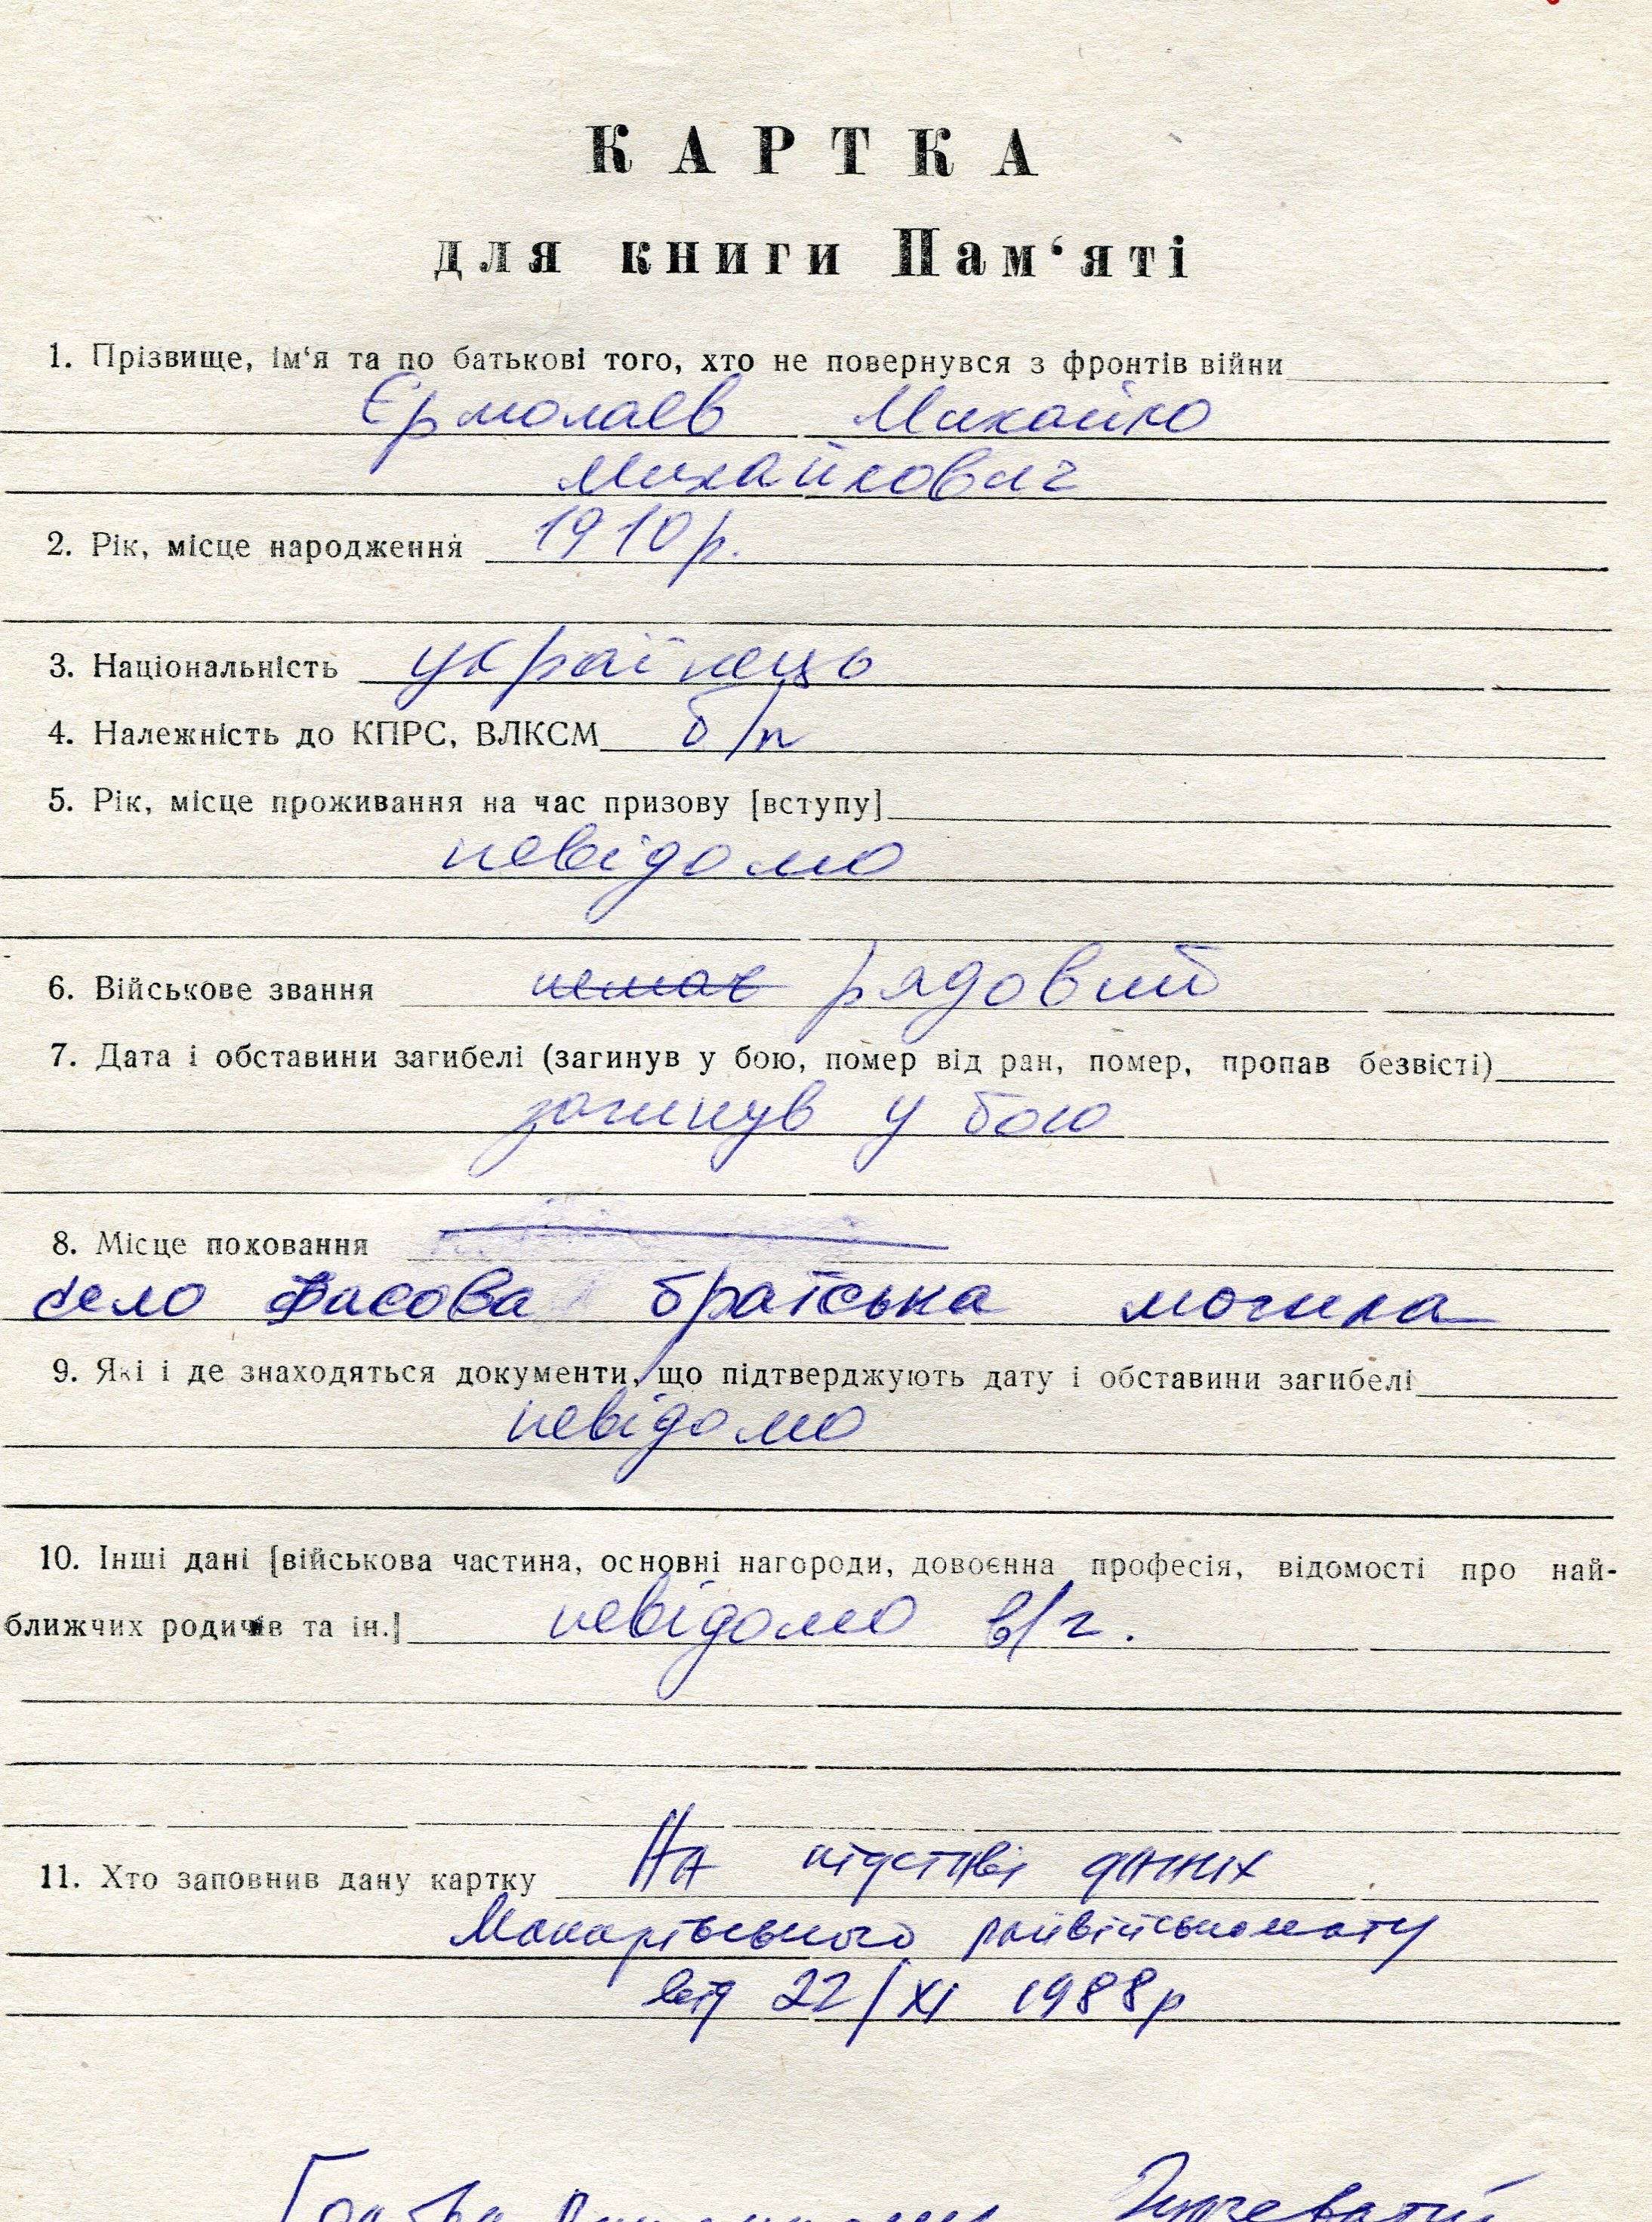 КАРТКА
для книги Пам‘яті
1. Прізвище, ім‘я та по батькові того, хто не повернувся з фронтів війни
Єрмолаєв Михайло
Михайлович
2. Рік, місце народження 1910 р.
3. Національність українець
4. Належність до КПРС, ВЛКСМ б/п
5. Рік, місце проживання на час призову [вступу]
невідомо
6. Військове звання немає рядовий
7. Дата і обставини загибелі (загинув у бою, помер від ран, помер, пропав безвісті)
загинув у бою
8. Місце поховання
село Фасова братська могила
9. Які і де знаходяться документи, що підтверджують дату і обставини загибелі
невідомо
10. Інші дані [військова частина, основні нагороди, довоєнна професія, відомості про най-
ближчих родичів та ін.] невідомо в/ч.
11. Хто заповнив дану картку На підставі даних
Макарівського райвійськомату
від 22/XI 1988р
Голова